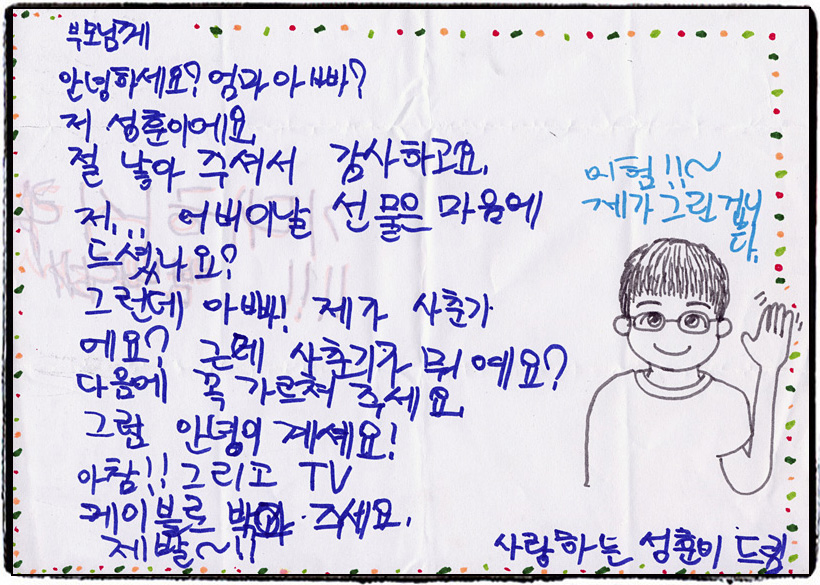 부모님께
안녕하세요? 엄마 아빠?
저 성훈이에요.
절 낳아 주셔서 감사하고요.
저... 어버이날 선물은 마음에
드셨나요?
그런데 아빠! 제가 사춘기
에요? 근데 사춘기가 뭐예요?
다음에 꼭 가르쳐 주세요.
그럼 안녕이 계세요!
아참!! 그리고 TV
케이블로 바꿔 주세요.
제발~!!
이험!!~
제가 그린 겁니
다.
사랑하는 성훈이 드림